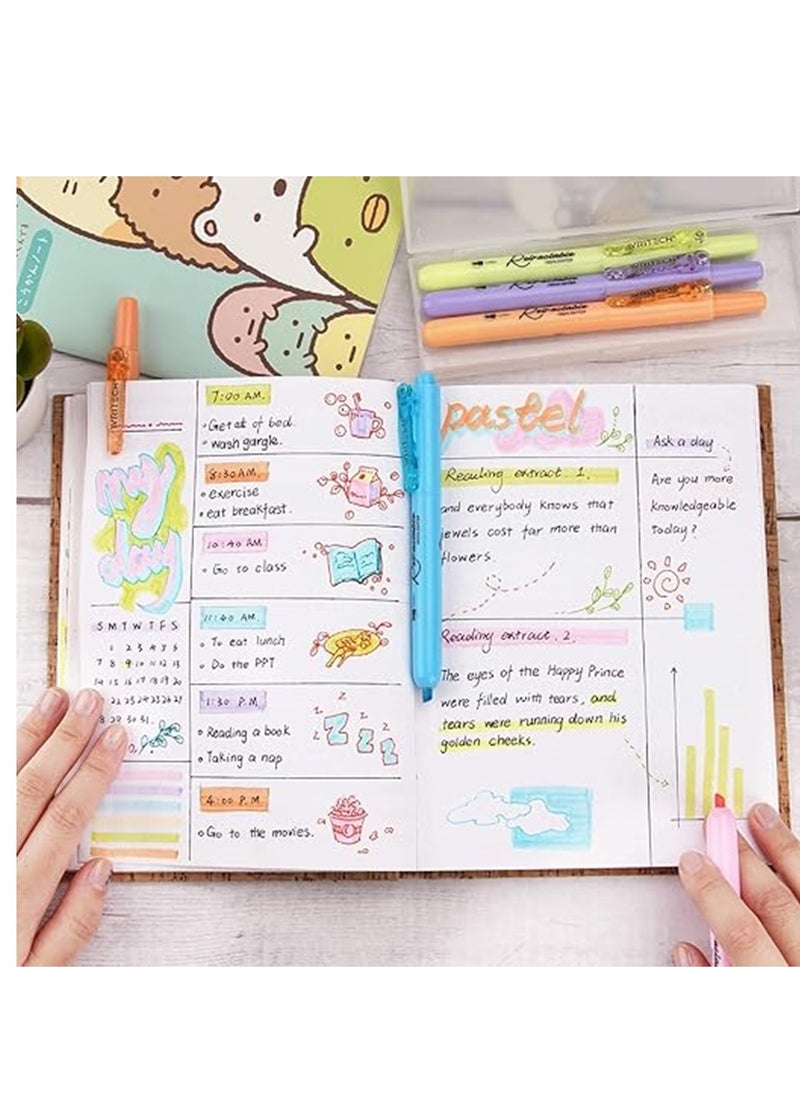 こうかんノート
WRITECH
Retractable
HIGHLIGHTER
WRITECH
Retractable
HIGHLIGHTER
WRITECH
Retractable
HIGHLIGHTER
WRITECH
may
day
S M T W T F S
1 2 3 4 5 6
7 8 9 10 11 12 13
14 15 16 17 18 19 20
22 23 24 25 26 27
29 30 31.
7:00 AM.
Get at of bed.
wash gargle.
8:30 AM.
exercise
eat breakfast.
10:40 AM
Go to class
11:40 AM
To eat lunch
Do the PPT
1:30 P.M
Reading a book
Taking a nap
z z z Z Z Z
4:00 P.M
Go to the movies.
pastel
Reading extract 1.
and everybody knows that
jewels cost far more than
flowers.
Reading extract. 2.
The eyes of the Happy Prince
were filled with tears, and
tears were running down his
golden cheeks.
Ask a day
Are you more
knowledgeable
today?